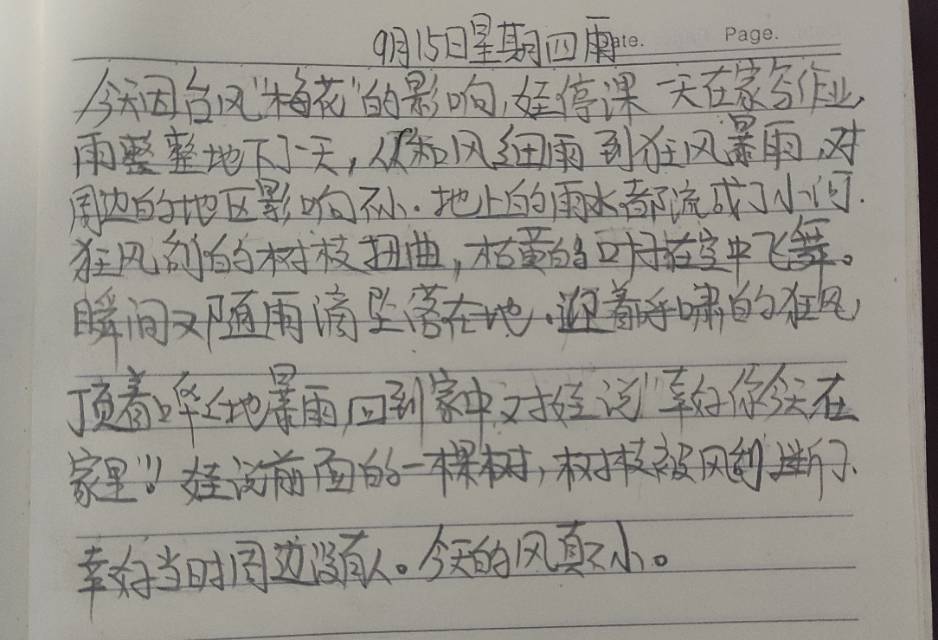 9月15日星期四雨 ate. Page.
今天因台风"梅花"的影响,娃停课一天在家写作业,
雨整整地下了一天,从和风细雨到狂风暴雨,对
周边的地区影响不小.地上的雨水都流成了小河.
狂风刮的树枝扭曲,枯黄的叶子在空中飞舞。
瞬间又随雨滴坠落在地.迎着呼啸的狂风,
顶着哗哗地暴雨回到家中,对娃说"幸好你今天在
家里"!娃说前面的一棵树,树枝被风刮断了.
幸好当时周边没有人。今天的风真不小。